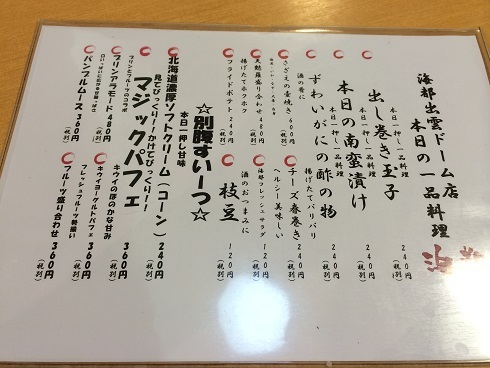 海都出雲ドーム店
本日の一品料理
海都
本日一押し一品料理
出し巻き玉子
360円
(税別)
本日一押し一品料理
本日の南蛮漬け
360円
(税別)
本日一押し一品料理
ずわいがにの酢の物
360円
(税別)
酒の肴に
さざえの壺焼き 600円
天麩羅盛り合わせ
480円
揚げたてホクホク
フライドポテト 240円
揚げたてパリパリ
チーズ春巻き
240円
(税別)
ヘルシー美味しい
海都フレッシュサラダ
120円
(税別)
酒のおつまみに
枝豆
120円
(税別)
☆別腹すいーつ☆
本日一押し甘味
北海道濃厚ソフトクリーム(コーン)
240円
(税別)
見てびっくり!かけてびっくり!!
マジックパフェ
360円
(税別)
プリンとフルーツのコラボ
プリンアラモード 480円
(税別)
パンプルムース 360円
(税別)
キウイのほのかな甘み
キウイヨーグルトパフェ 360円
(税別)
フレッシュフルーツ勢揃い
フルーツ盛り合わせ 360円
(税別)